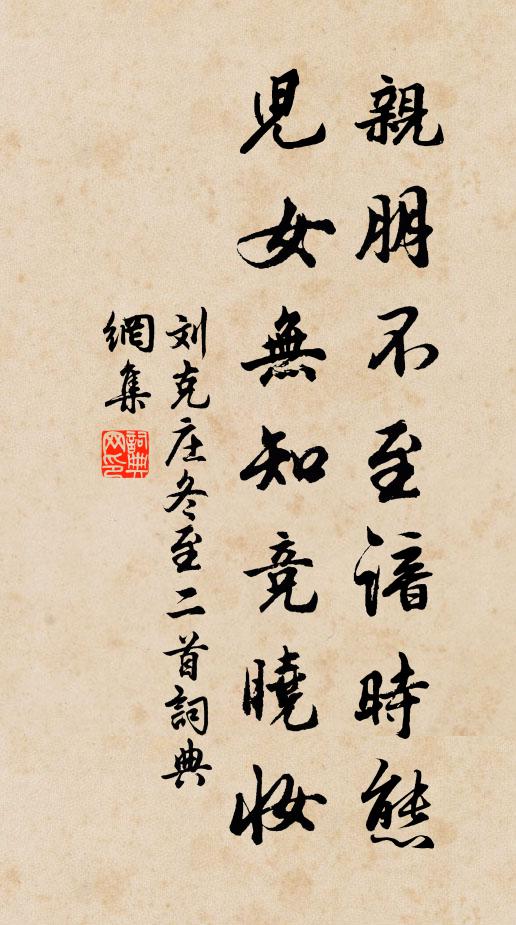 親朋不至諳時態
兒女無知竞曉妆
刘克庄冬至二首詞典
網集
詞典网印